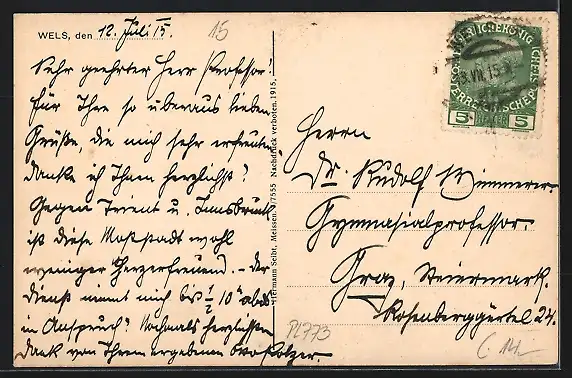 WELS, den 12. Juli 15.
15
Sehr geehrter Herr Professor!
Für Ihre so überaus lieben
Grüße, die mich sehr erfreuten,
danke ich Ihnen herzlichst!
Gegen Trient u. Innsbruck
ist diese Moststadt wohl
weniger herzerfreuend. – Der
Dienst nimmt mich bis ½ 10h abds
in Anspruch! Nochmals herzlichsten
Dank von Ihrem ergebenen
Hermann Seibt, Meissen. 17555 Nachdruck verboten. 1915.
5 5
VII. 15
Herrn
Dr. Rudolf Wimmerer
Gymnasialprofessor
Graz, Steiermark.
Rosenberggürtel 24.
P1773